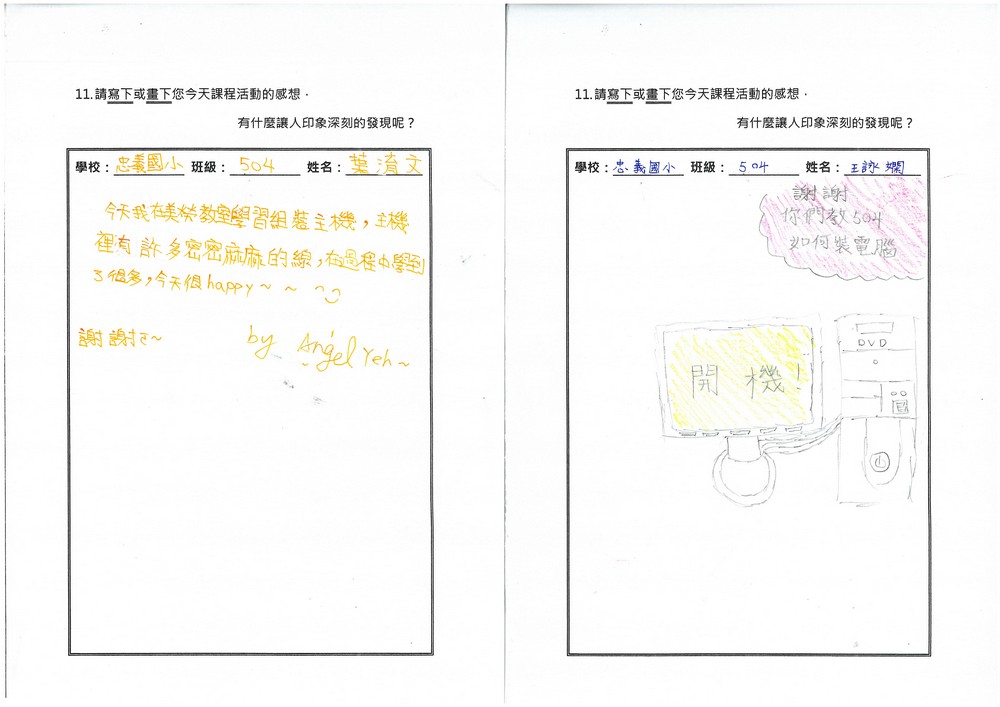 11.請寫下或畫下您今天課程活動的感想，
有什麼讓人印象深刻的發現呢？
學校：忠義國小 班級：504 姓名：葉淯文
今天我在美勞教室學習組裝主機，主機
裡有許多密密麻麻的線，在過程中學到
了很多，今天很happy~ ~
謝謝ㄛ~ by Angel Yeh~
11.請寫下或畫下您今天課程活動的感想，
有什麼讓人印象深刻的發現呢？
學校：忠義國小 班級：504 姓名：王詠嫻
謝謝
你們教504
如何裝電腦
開機!
DVD